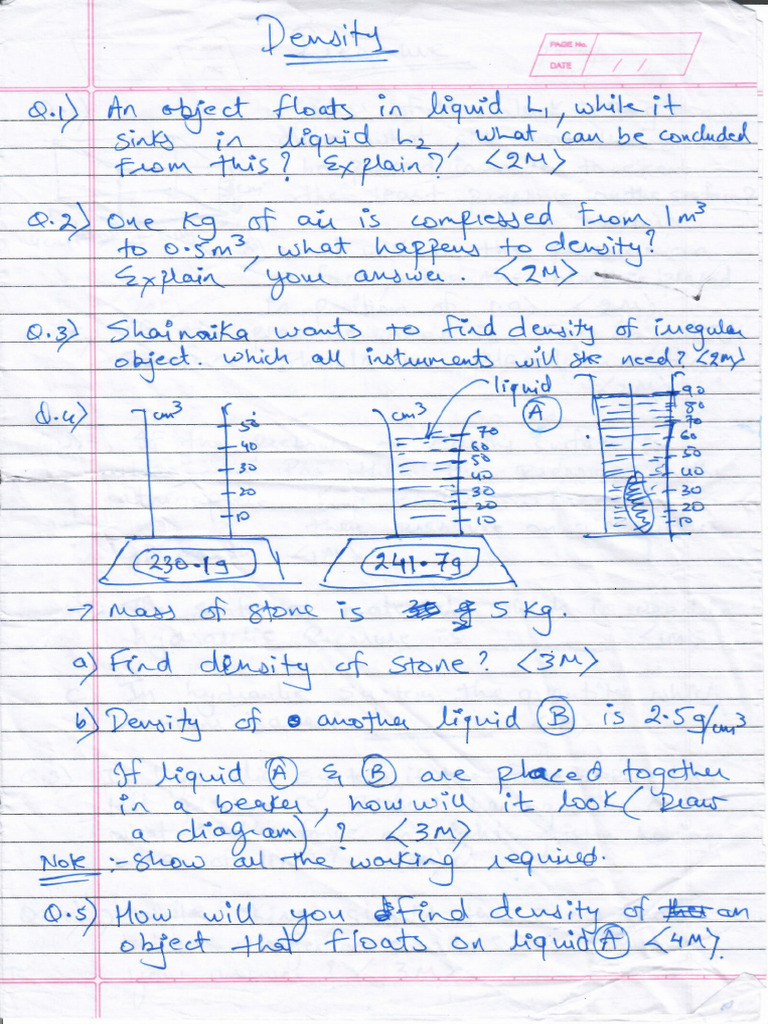 Density
PAGE No.
DATE / /
Q.1) An object floats in liquid L1, while it
sinks in liquid L2, what can be concluded
from this? Explain? <2M>
Q.2) One Kg of air is compressed from 1m³
to 0.5m³, what happens to density?
Explain your answer. <2M>
Q.3) Shainaika wants to find density of irregular
object. which all instruments will she need? <2M>
Q.4)
cm³
50
40
30
20
10
230.1g
cm³
liquid
A
70
60
50
40
30
20
10
241.7g
90
80
70
60
50
40
30
20
10
→ mass of stone is 5 Kg.
a) Find density of stone? <3M>
b) Density of another liquid B is 2.5g/cm³
If liquid A & B are placed together
in a beaker, how will it look (Draw
a diagram)? <3M>
Note :- Show all the working required.
Q.5) How will you find density of an
object that floats on liquid A <4M>.